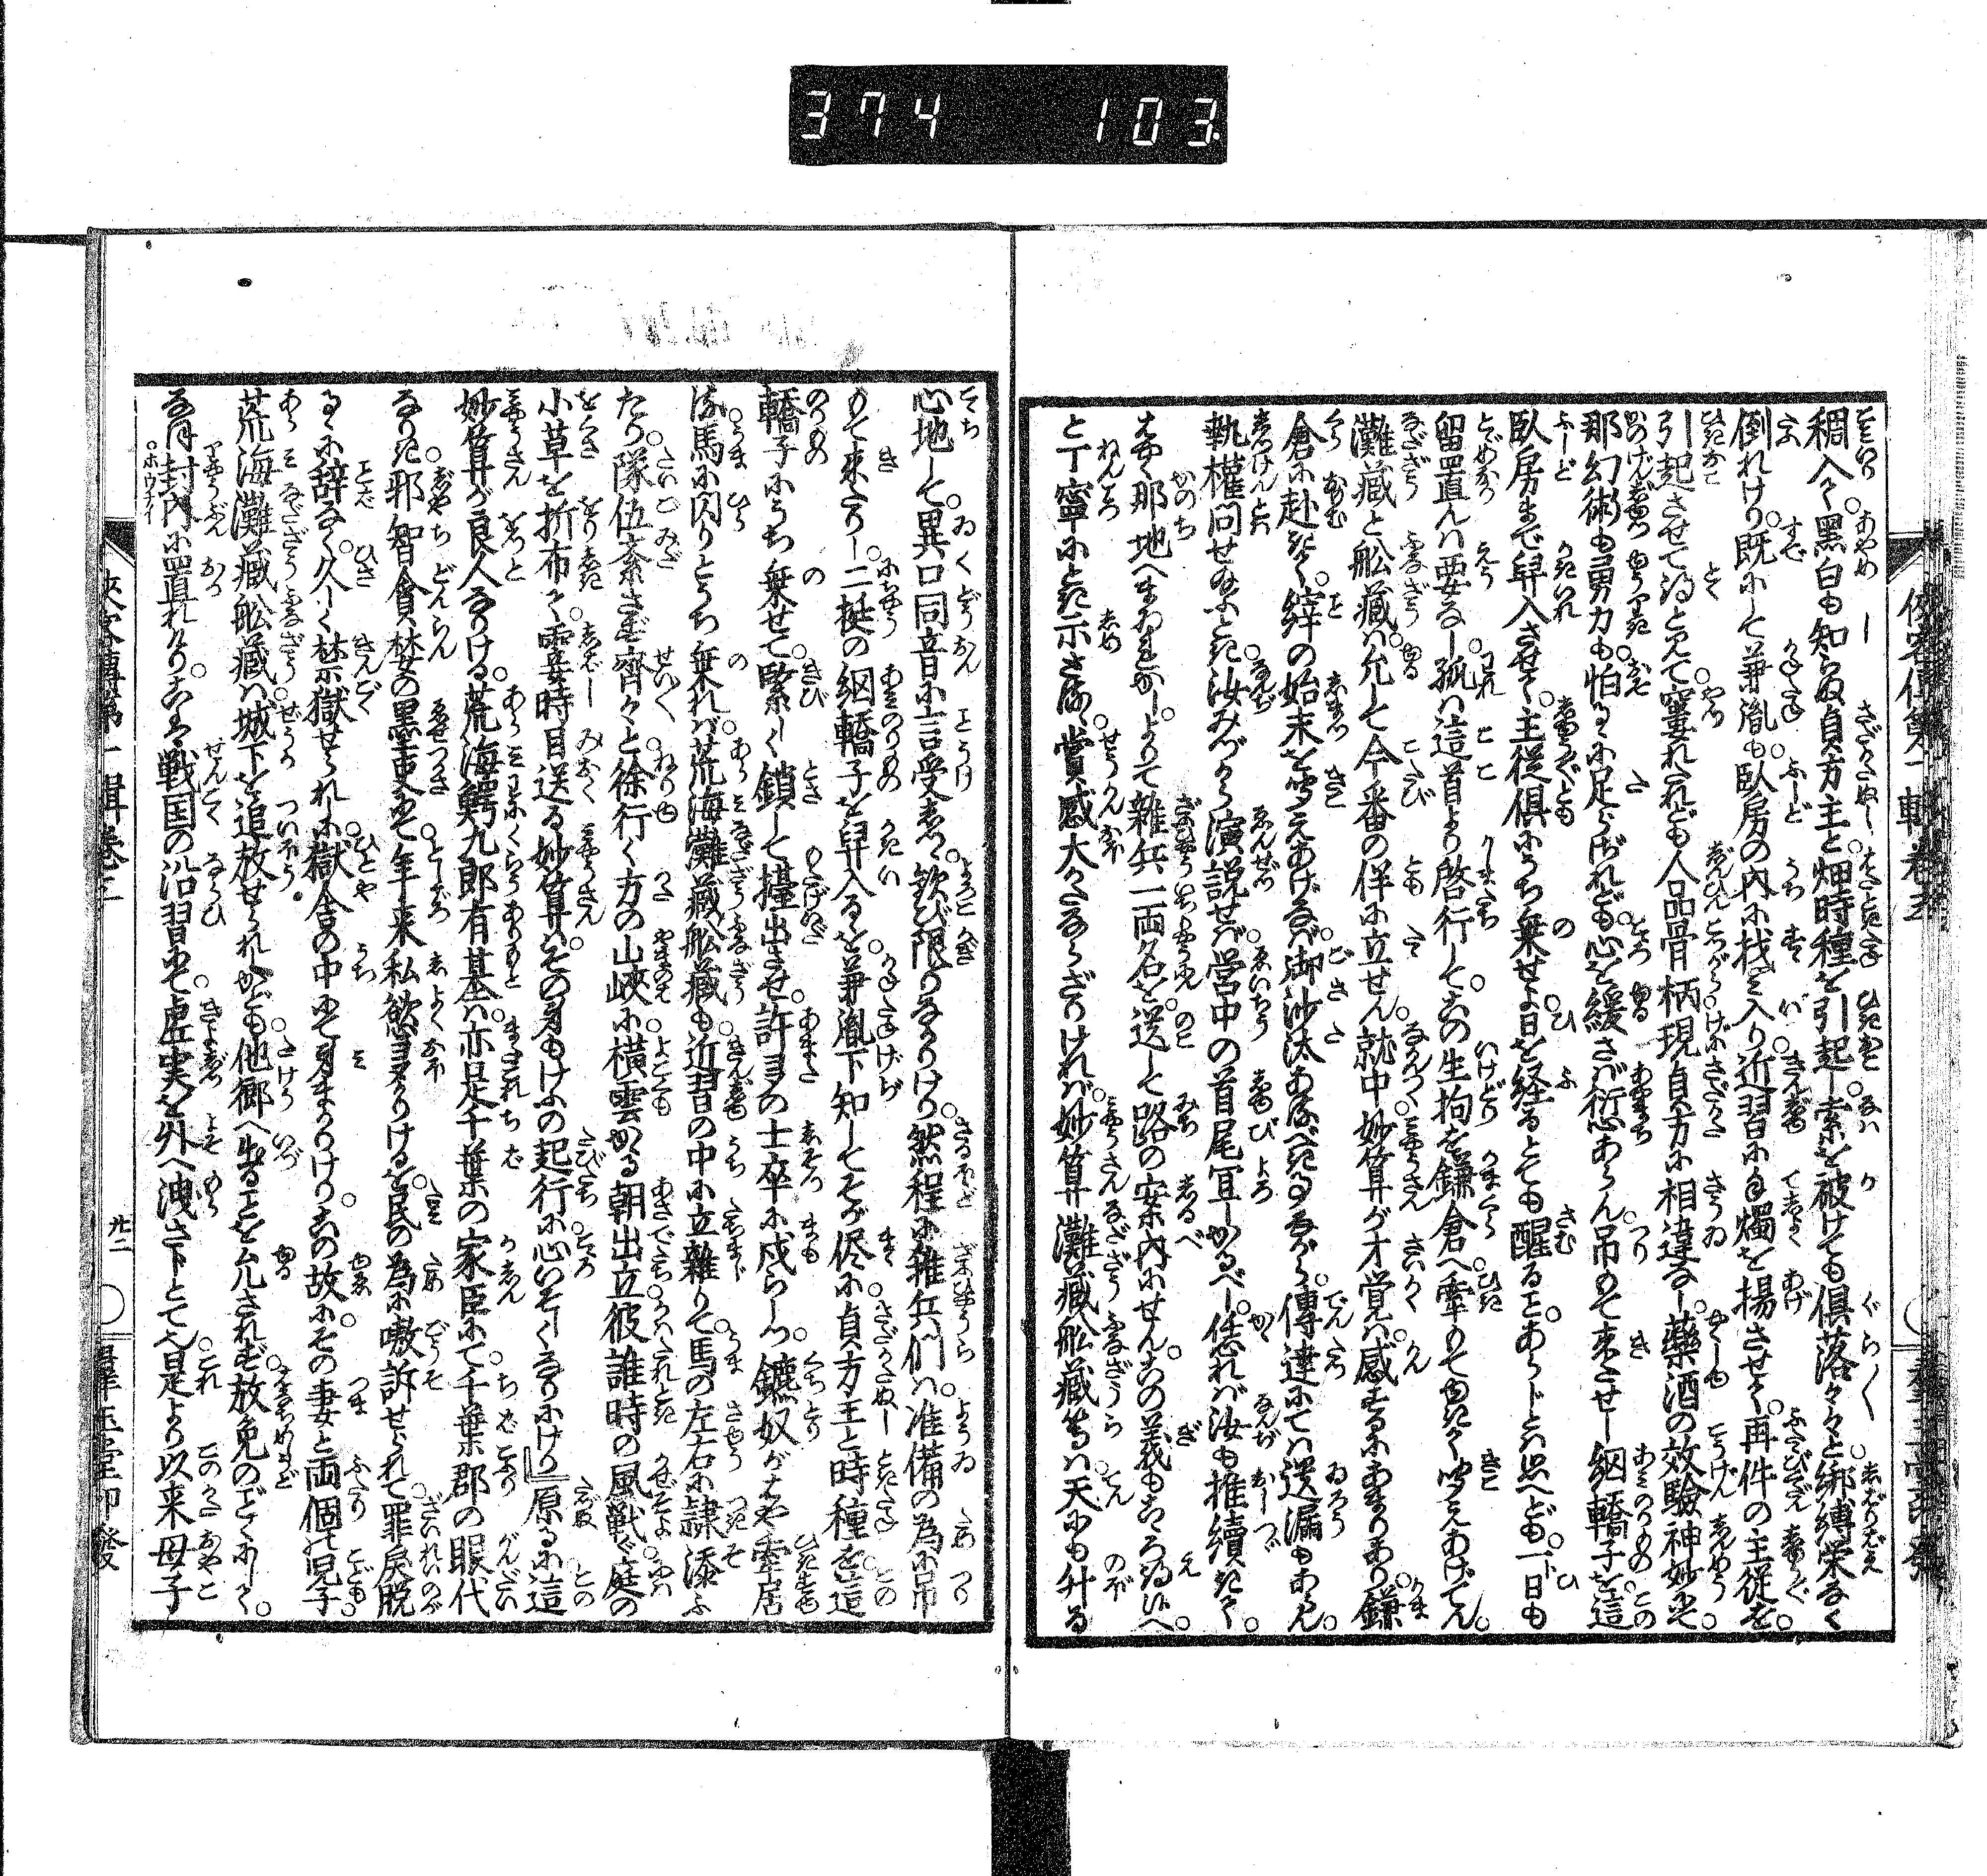 374 103
稠入りて黒白も知らぬ貞方主と畑時種を引起し索を被けても倶落々々と綁縛栄なく
倒れけり既にして兼胤も臥房の内に找み入り近習に手燭を揚させて再件の主従を
引起させて得と見て窶れたれども人品骨柄現貞方に相違なし藥酒の效驗神妙にて
那幻術も勇力も怕るゝに足らずされども心を緩さば衍あらん吊もて来させし網轎子を這
臥房まで舁入させて主従倶にうち乗せよ日を経るとても醒ることあらじとは思へども一日も
留置んは要なし孤は這首より啓行してこの生拘を鎌倉へ牽もてゆきて聞えあげてん
灘蔵と舩蔵は允して今番の伴に立せん就中妙算が才覚は感ずるにあまりあり鎌
倉に赴きて縡の始末を聞えあげなば御沙汰あるべきなるながら傳達にては遺漏もあらん
執權問せ給ふとき汝みづから演説せば営中の首尾宜しかるべし恁れば汝も推續きて
はやく那地へまゐれかしよりて雑兵一両名を送して路の案内にせんこの義もこゝろ得よ
と丁寧にとき示さる賞感大かたならざりければ妙算灘蔵舩蔵等は天にも升る
心地して異口同音に言受しつ歓び限りなかりけり然程に雑兵們は准備の為に吊
もて来たりし二挺の網轎子を舁入るゝを兼胤下知してそが侭に貞方主と時種を這
轎子にうち乗せて緊しく鎖して擡出させ許多の士卒に戍らしつ鑣奴がはや牽居
る馬に閃りとうち乗れば荒海灘蔵舩蔵も近習の中に立雑りて馬の左右に隷添ふ
たり隊伍紊さず齊々と徐行く方の山峽に横雲かゝる朝出立彼誰時の風戦ぐ庭の
小草を折布て霎時目送る妙算はその身もけふの起行に心いそしくなりにけり原るに這
妙算が良人なりける荒海鰐九郎有基は亦是千葉の家臣にて千葉郡の眼代
なりき邪智貪婪の黒吏にて年来私慾多かりけるを民の為に嗷訴せられて罪戻脱
るゝに辞なく久しく禁獄せられしに獄舎の中にて身まかりけりこの故にその妻と両個の児子
荒海灘蔵舩蔵は城下を追放せられしかども他郷へ出ることを允されず放免のごとくにして
なほ封内に置れけりこは戦国の沿習にて虚実を外へ洩さじとて也是より以来母子
ホウナイ
侠客傳第二輯巻五
群玉堂印發